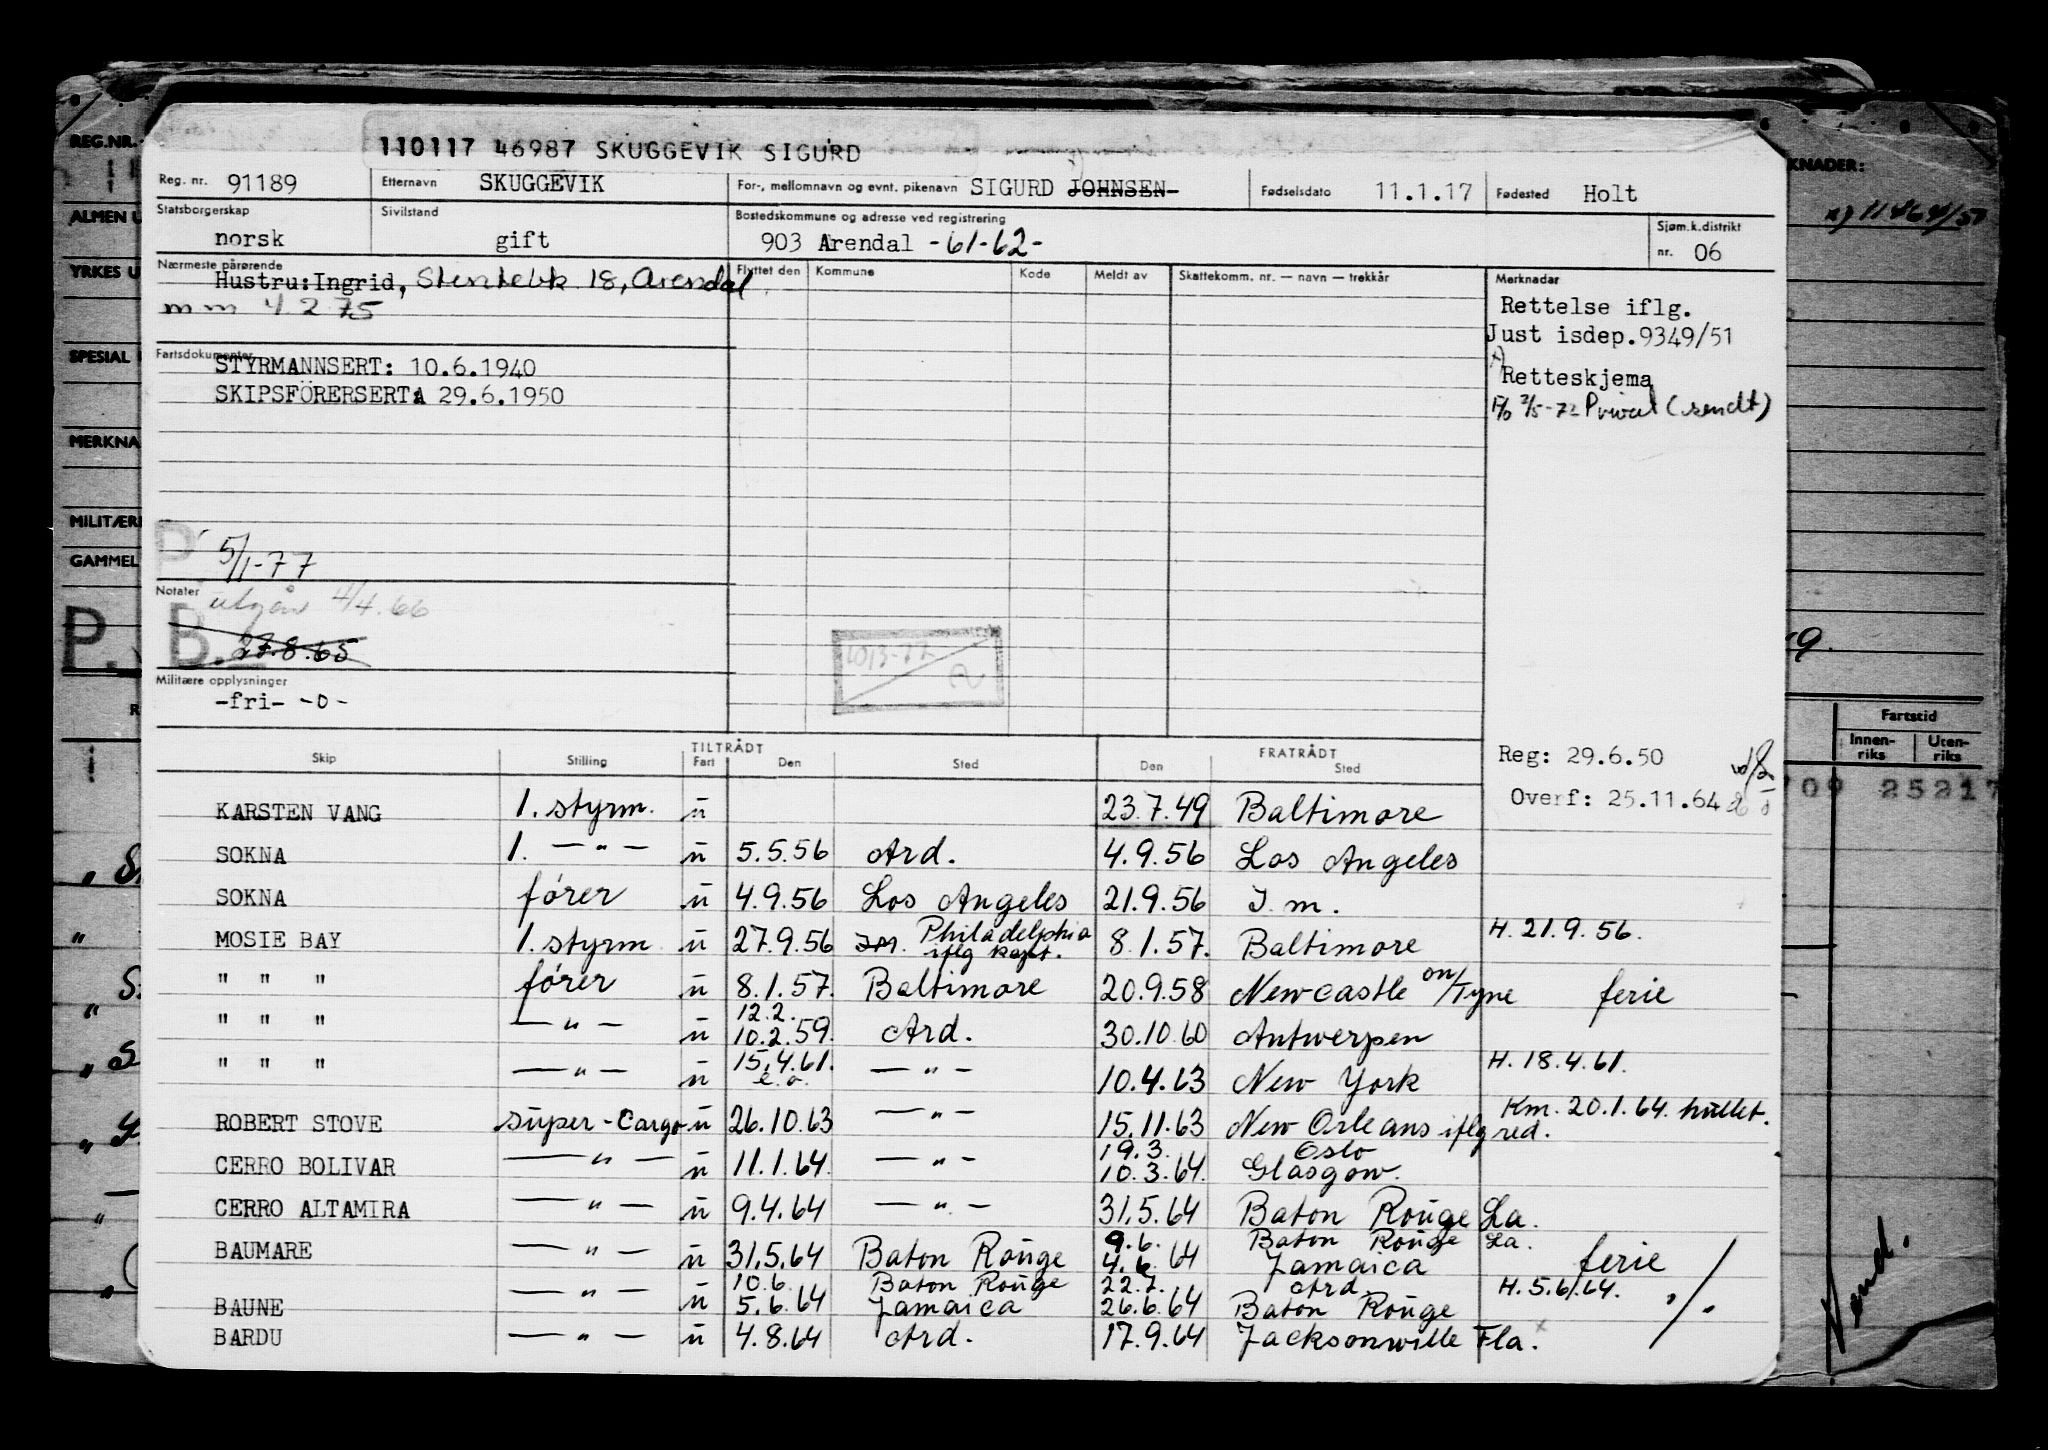 110117 46987 SKUGGEVIK SIGURD
Reg. nr. 91189 Etternavn SKUGGEVIK For-, mellomnavn og evnt. pikenavn SIGURD JOHNSEN- Fødselsdato 11.1.17 Fødested Holt
Statsborgerskap norsk Sivilstand gift Bostedskommune og adresse ved registrering 903 Arendal -61-62- Sjøm.k.distrikt nr. 06
Nærmeste pårørende Hustru:Ingrid, Arendal
m m 4 2 75
Flyttet den Kommune Kode Meldt av Skattekomm. nr. — navn — trekkår
Merknadar
Rettelse iflg.
Just isdep.9349/51
x)
Retteskjema
(sendt)
Fartsdokumenter
STYRMANNSERT: 10.6.1940
SKIPSFÖRERSERT: 29.6.1950
P.
5/1-77
Notater utgår 4/4.66
B. 27.8.65
Militære opplysninger
-fri- -0-
Reg: 29.6.50
Overf: 25.11.64
TILTRÅDT FRATRÅDT
Skip Stilling Fart Den Sted Den Sted
KARSTEN VANG 1. styrm. u 23.7.49 Baltimore
SOKNA 1. — " — u 5.5.56 Ard. 4.9.56 Los Angeles
SOKNA fører u 4.9.56 Los Angeles 21.9.56 J. m.
MOSIE BAY 1. styrm u 27.9.56 J.M. Philadelphia iflg kapt. 8.1.57. Baltimore H. 21.9.56.
" " " fører u 8.1.57. Baltimore 20.9.58 Newcastle on/Tyne ferie
" " " — " — u 12.2. 10.2.59. Ard. 30.10.60 Antwerpen
" " " — " — u 15.4.61. e.o. — " — 10.4.63 New York H. 18.4.61.
ROBERT STOVE super-Cargo u 26.10.63 — " — 15.11.63 New Orleans iflg red. Km. 20.1.64. hullet.
CERRO BOLIVAR — " — u 11.1.64. — " — 19.3. 10.3.64. Oslo Glasgow.
CERRO ALTAMIRA — " — u 9.4.64 — " — 31.5.64 Baton Rouge La.
BAUMARE — " — u 31.5.64 Baton Rouge 9.6. 4.6.64 Baton Rouge La. Jamaica ferie
BAUNE — " — u 10.6. 5.6.64 Baton Rouge Jamaica 22.7. 26.6.64 Ard. Baton Rouge H. 5.6.64. ./.
BARDU — " — u 4.8.64 Ard. 17.9.64 Jacksonville Fla.
REG.NR.
ALMEN U
YRKES U
SPESIAL
MERKNA
MILITÆRE
GAMMEL
P.
KNADER:
x) 11464/51
Fartstid
Innen-riks Uten-riks
09 25217